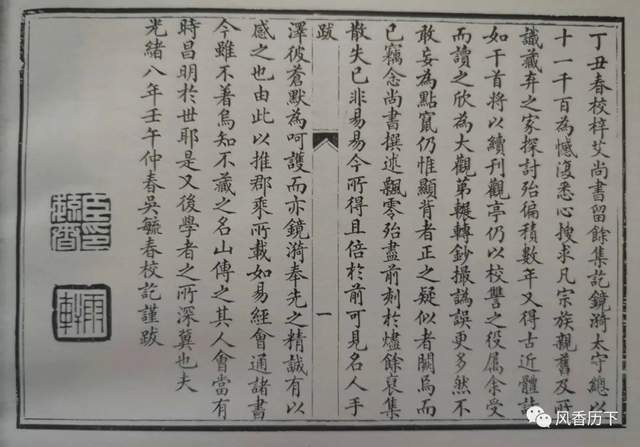 丁丑春校梓艾尚書留餘集訖鏡漪太守總以
十一千百為憾復悉心搜求凡宗族親舊及所
識藏弆之家探討殆徧積數年又得古近體詩
如干首將以續刊觀亭仍以校讐之役屬余受
而讀之欣為大觀第輾轉鈔撮譌誤更多然不
敢妄為點竄仍惟顯背者正之疑似者闕焉而
已竊念尚書撰述飄零殆盡前刻於燼餘裒集
散失已非易易今所得且倍於前可見名人手
跋
一
澤彼蒼默為呵護而亦鏡漪奉先之精誠有以
感之也由此以推郡乘所載如易經會通諸書
今雖不著烏知不藏之名山傳之其人會當有
時昌明於世耶是又後學者之所深冀也夫
光緒八年壬午仲春吳毓春校訖謹跋
雨軒
风香历下